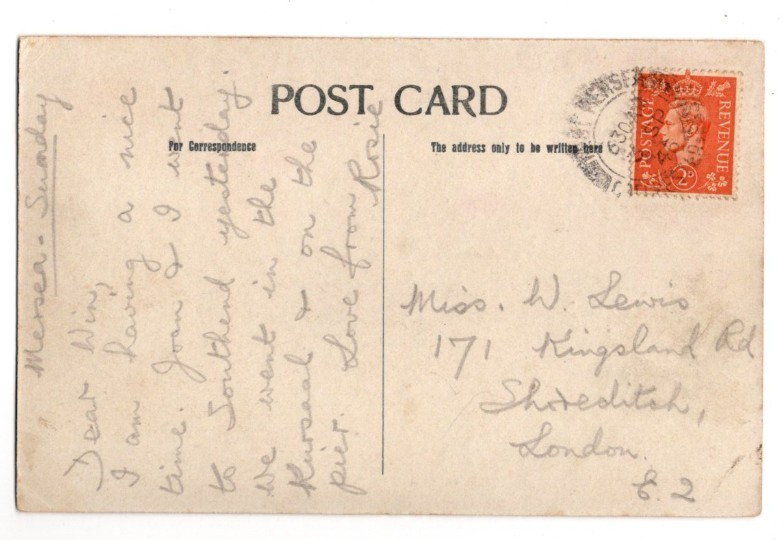 POST CARD
For Correspondence
The address only to be written here
Mersea - Sunday
Dear Win,
I am having a nice
time. Joan & I went
to Southend yesterday.
We went in the
Kursaal & on the
pier. Love from Rosie
Miss. W. Lewis
171 Kingsland Rd
Shoreditch,
London.
E. 2
POSTAGE
REVENUE
2D